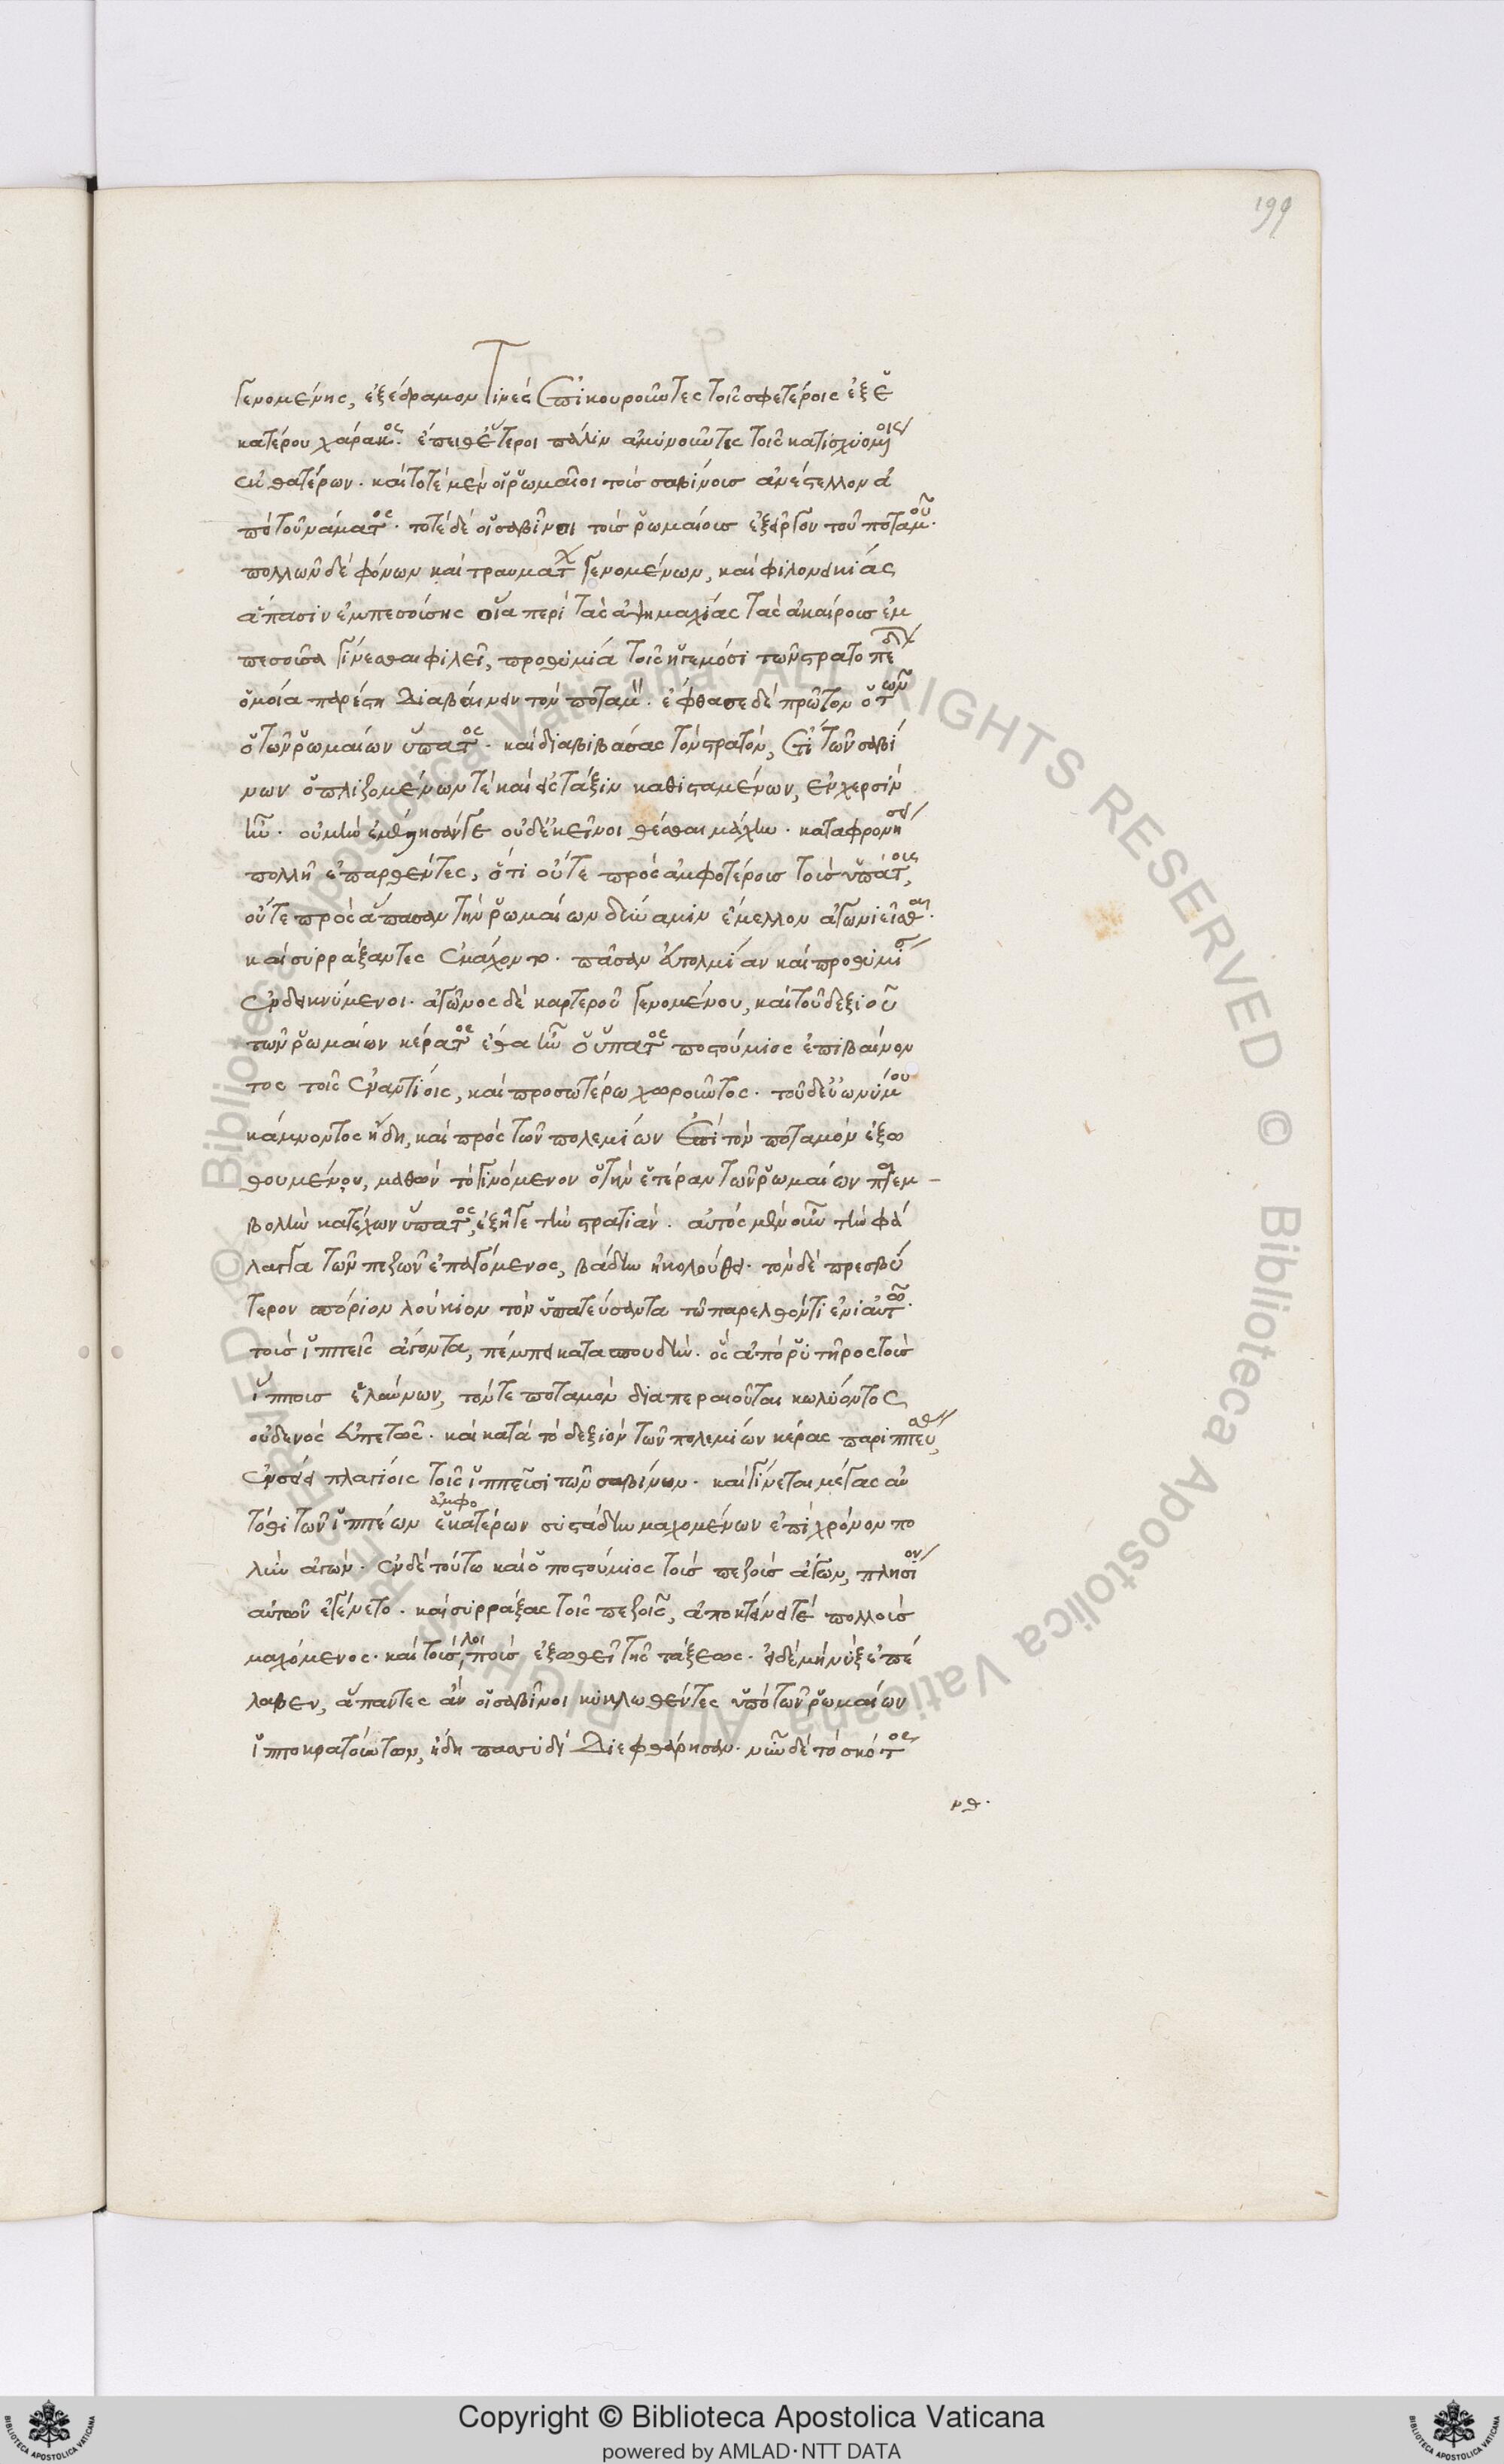 199
γενομένης, ἐξέδραμον τινὲς ἐπικουροῦντες τοῖς σφετέροις ἐξ ἑ
κατέρου χάρακος. ἔπειθ' ἕτεροι πάλιν ἀμύνοντες τοῖς κατισχυομένοις
ἐκ θατέρων. καὶ τοτὲ μὲν οἱ ῥωμαῖοι τοὺς σαβίνους ἀνέστελλον ἀ
πὸ τοῦ νάματος. τοτὲ δὲ οἱ σαβῖνοι τοὺς ῥωμαίους ἐξεῖργον τοῦ ποταμοῦ.
πολλῶν δὲ φόνων καὶ τραυμάτων γενομένων, καὶ φιλονεικίας
ἅπασιν ἐμπεσούσης οἷα περὶ τὰς ἁψιμαχίας τὰς ἀκαίρους ἐμ
πεσοῦσα γίνεσθαι φιλεῖ, προθυμία τοῖς ἡγεμόσι τῶν στρατοπέδων
ὁμοία παρέστη διαβαίνειν τὸν ποταμόν. ἔφθασε δὲ πρῶτον ὁ τῶν
ὁ τῶν ῥωμαίων ὕπατος. καὶ διαβιβάσας τὸν στρατὸν, ἔτι τῶν σαβί
νων ὁπλιζομένων τε καὶ εἰς τάξιν καθισταμένων, ἐν χερσὶν
ἦν. οὐ μὴν ἐμέλλησάν γε οὐδὲ κεῖνοι θέσθαι μάχην. καταφρονήσει
πολλῇ ἐπαρθέντες, ὅτι οὔτε πρὸς ἀμφοτέρους τοὺς ὑπάτους,
οὔτε πρὸς ἅπασαν τὴν ῥωμαίων δύναμιν ἔμελλον ἀγωνιεῖσθαι.
καὶ συρράξαντες ἐμάχοντο. πᾶσαν εὐτολμίαν καὶ προθυμίαν
ἐνδεικνύμενοι. ἀγῶνος δὲ καρτεροῦ γενομένου, καὶ τοῦ δεξιοῦ
τῶν ῥωμαίων κέρατος ἔνθα ἦν ὁ ὕπατος ποστούμιος ἐπιβαίνον
τος τοῖς ἐναντίοις, καὶ προσωτέρω χωροῦντος. τοῦ δ' εὐωνύμου
κάμνοντος ἤδη, καὶ πρὸς τῶν πολεμίων ἐπὶ τὸν ποταμὸν ἐξω
θουμένου, μαθὼν τὸ γινόμενον ὁ τὴν ἑτέραν τῶν ῥωμαίων παρεμ-
βολὴν κατέχων ὕπατος, ἐξῆγε τὴν στρατιάν. αὐτὸς μὲν οὖν τὴν φά
λαγγα τῶν πεζῶν ἐπαγόμενος, βάδην ἠκολούθει. τὸν δὲ πρεσβύ
τερον σπόριον λούκιον τὸν ὑπατεύσαντα τῷ παρελθόντι ἐνιαυτῷ.
τοὺς ἱππεῖς ἄγοντα, πέμπει κατασπουδήν. ὃς ἀπὸ ῥυτῆρος τοὺς
ἵππους ἐλαύνων, τόν τε ποταμὸν διαπεραιοῦται κωλύοντος
οὐδενὸς εὐπετῶς. καὶ κατὰ τὸ δεξιὸν τῶν πολεμίων κέρας παριππεύσας,
ἐνσείει πλαγίοις τοῖς ἱππεῦσι τῶν σαβίνων. καὶ γίνεται μέγας αὐ
τόθι τῶν ἱππέων ἑκατέρων συστάδην μαχομένων ἐπὶ χρόνον πο
ἀμφο
λὺν ἀγών. ἐν δὲ τούτω καὶ ὁ ποστούμιος τοὺς πεζοὺς ἄγων, πλησίον
αὐτῶν ἐγένετο. καὶ συρράξας τοῖς πεζοῖς, ἀποκτείνει τὲ πολλοὺς
μαχόμενος. καὶ τοὺς λοιποὺς ἐξωθεῖ τῆς τάξεως. εἰ δὲ μὴ νὺξ ἐπέ
λαβεν, ἅπαντες ἂν οἱ σαβῖνοι κυκλωθέντες ὑπὸ τῶν ῥωμαίων
ἱπποκρατούντων, ἤδη πασσυδὶ διεφθάρησαν. νῦν δὲ τὸ σκότος
νθ.
Copyright © Biblioteca Apostolica Vaticana
powered by AMLAD·NTT DATA
© Biblioteca Apostolica Vaticana ALL RIGHTS RESERVED © Biblioteca Apostolica Vaticana ALL RIGHTS RESERVED